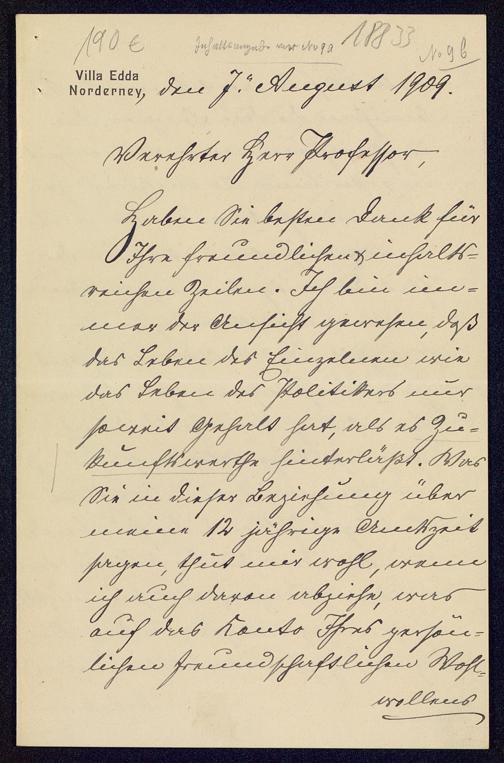 190 €
Inhaltsangabe von No 9a
18833
No 9b
Villa Edda
Norderney,
den 7. August 1909.
Verehrter Herr Professor,
Haben Sie besten Dank für
Ihre freundlichen & inhalts=
reichen Zeilen. Ich bin im=
mer der Ansicht gewesen, daß
das Leben des Einzelnen wie
das Leben des Politikers nur
soweit Gehalt hat, als es Zu=
kunftswerthe hinterläßt. Was
Sie in dieser Beziehung über
meine 12 jährige Amtszeit
sagen, thut mir wohl, wenn
ich auch davon abziehe, was
auf das Konto Ihres persön=
lichen freundschaftlichen Wohl=
wollens